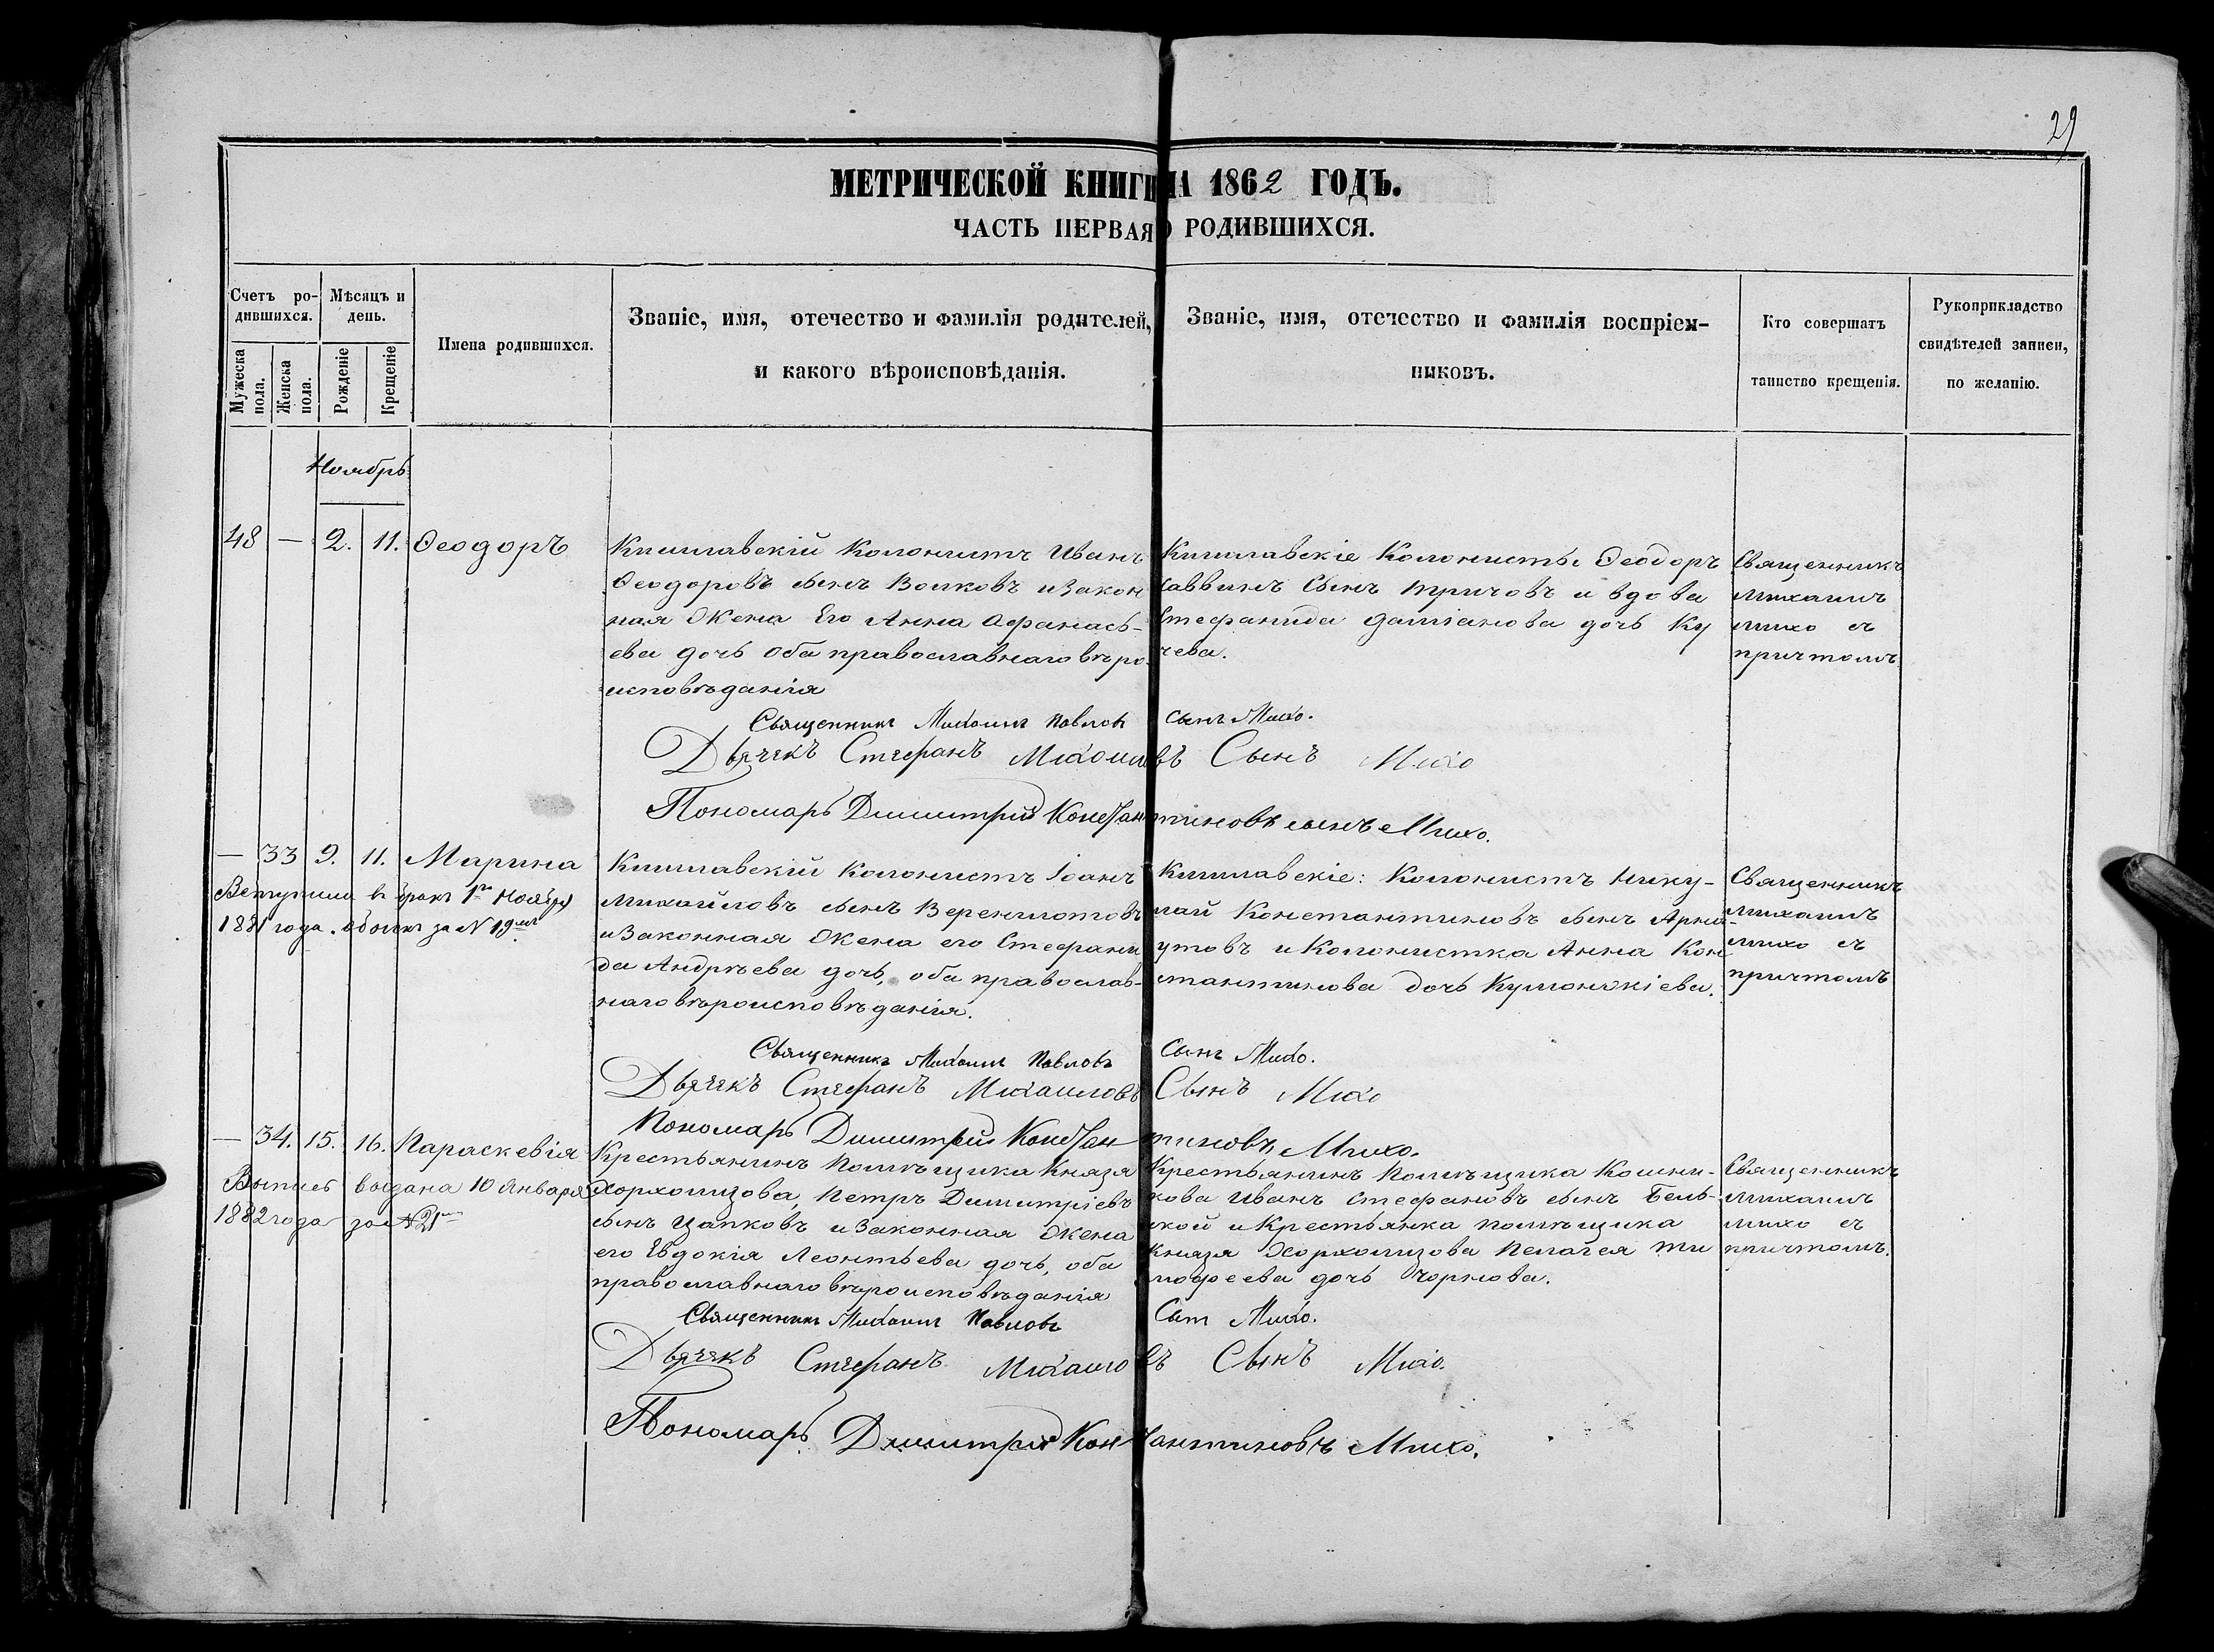 29
МЕТРИЧЕСКОЙ КНИГИ НА 1862 ГОДЪ.
ЧАСТЬ ПЕРВАЯ О РОДИВШИХСЯ.
Счетъ ро-
дившихся.
Мужеска пола.
Женска пола.
Мѣсяцъ и
день.
Рожденіе
Крещеніе
Имена родившихся.
Званіе, имя, отечество и фамилія родителей,
и какого вѣроисповѣданія.
Званіе, имя, отечество и фамилія воспріем-
никовъ.
Кто совершатъ
таинство крещенія.
Рукоприкладство
свидѣтелей записи,
по желанію.
Ноябрь
48 — 2. 11. Ѳеодоръ
Кишлавскій Колонистъ Иванъ
Ѳеодоровъ сынъ Волковъ и Закон
ная Жена Его Анна Афанась-
ева дочь оба православнаго вѣро-
исповѣданія
Кишлавскіе Колонисты Ѳеодоръ
Саввинъ Сынъ Тричовъ и вдова
Стефанида Даміанова дочь Ку
чева.
Священникъ
Михаилъ
Михо съ
причтомъ
Священникъ Михаилъ Павловъ сынъ Михо.
Дьячекъ Стефанъ Михаиловъ Сынъ Михо
Пономарь Димитрій Константиновъ сынъ Михо.
— 33 9. 11. Марина
Вступила въ бракъ 1го Ноября
1881 года. обыскъ за N 19мъ
Кишлавскій Колонистъ Іоанъ
Михайловъ сынъ
и Законная Жена его Стефани
да Андрѣева дочь, оба православ-
наго вѣроисповѣданія.
Кишлавскіе: Колонистъ Нику-
лай Константиновъ сынъ Арна-
утовъ и Колонистка Анна Кон
стантинова дочь
Священникъ
Михаилъ
Михо съ
причтомъ
Священникъ Михаилъ Павловъ Сынъ Михо.
Дьячекъ Стефанъ Михаиловъ Сынъ Михо
Пономарь Димитрій Константиновъ Михо.
— 34. 15. 16. Параскевія
Выпись выдана 10 Января
1882 года за N 21мъ
Крестьянинъ Помѣщика Князя
Петръ Димитріевъ
сынъ Цапковъ и Законная Жена
его Евдокія Леонтьева дочь, оба
православнаго вѣроисповѣданія
Крестьянинъ Помѣщика Кошни-
кова Иванъ Стефановъ сынъ Бель-
ской и Крестьянка помѣщика
Князя Пелагея Ти
мофеева дочь Чорнова.
Священникъ
Михаилъ
Михо съ
причтомъ.
Священникъ Михаилъ Павловъ Сынъ Михо.
Дьячекъ Стефанъ Михаиловъ Сынъ Михо.
Пономарь Димитрій Константиновъ Михо.